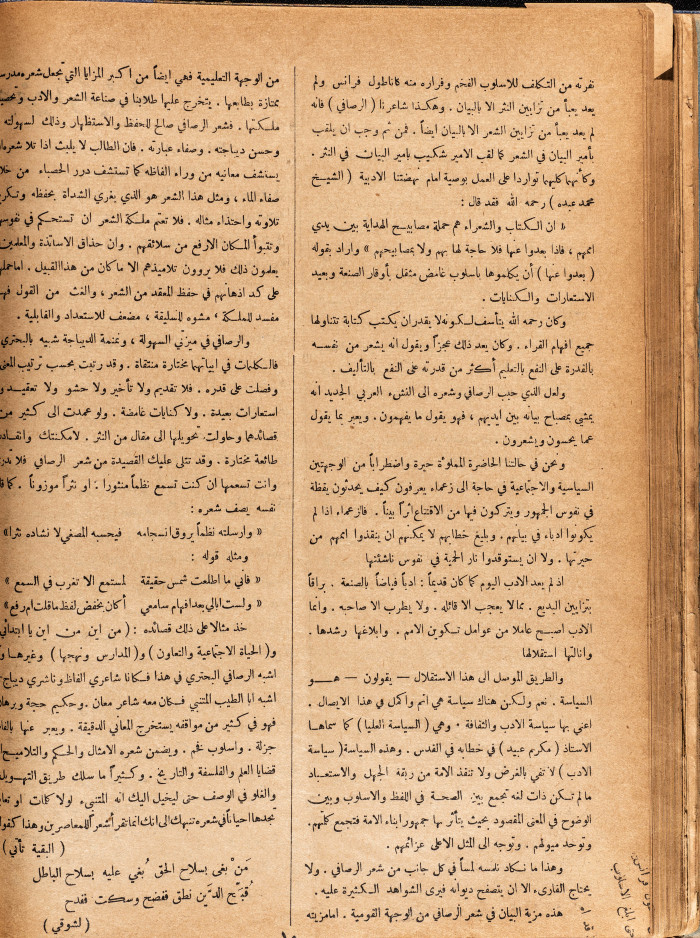 نفرته من التكلف للاسلوب الفخم وفراره منه كاناطول فرانس ولم
يعد يعبأ من تزايين النثر الا بالبيان . وهكذا شاعرنا ( الرصافي ) فانه
لم يعد يعبأ من تزايين الشعر الا بالبيان ايضاً . فمن ثم وجب ان يلقب
بأمير البيان في الشعر كما لقب الامير شكيب بامير البيان في النثر .
وكأنهما كليهما تواردا على العمل بوصية امام نهضتنا الادبية ( الشيخ
محمد عبده ) رحمه الله فقد قال :
« ان الكتاب والشعراء هم حملة مصابيح الهداية بين يدي
اممهم ، فاذا بعدوا عنها فلا حاجة لها بهم ولا بمصابيحهم » واراد بقوله
( بعدوا عنها ) أن يكلموها باسلوب غامض مثقل بأوقار الصنعة وبعيد
الاستعارات والكنايات .
وكان رحمه الله يتأسف لكونه لا يقدر ان يكتب كتابة تتناولها
جميع افهام القراء . وكان يعد ذلك عجزاً ويقول انه يشعر من نفسه
بالقدرة على النفع بالتعليم أكثر من قدرته على النفع بالتأليف .
ولعل الذي حبب الرصافي وشعره الى النشء العربي الجديد انه
يمشي بمصباح بيانه بين ايديهم ، فهو يقول ما يفهمون . ويعبر بما يقول
عما يحسون ويشعرون .
ونحن في حالتنا الحاضرة المملوءة حيرة واضطراباً من الوجهتين
السياسية والاجتماعية في حاجة الى زعماء يعرفون كيف يحدثون يقظة
في نفوس الجمهور ويتركون فيها من الاقتناع اثراً بيناً . فالزعماء اذا لم
يكونوا ادباء في بيانهم . وبليغ خطابهم لا يمكنهم ان ينقذوا اممهم من
حيرتها . ولا ان يستوقدوا نار الحمية في نفوس ناشئتها
اذ لم يعد الادب اليوم كما كان قديماً : ادباً فياضاً بالصنعة . براقاً
بتزايين البديع . مما لا يعجب الا قائله . ولا يطرب الا صاحبه . وانما
الادب اصبح عاملا من عوامل تكوين الامم . وابلاغها رشدها .
وانالتها استقلالها
والطريق الموصل الى هذا الاستقلال — يقولون — هو
السياسة . نعم ولكن هناك سياسة هي اتم واكمل في هذا الايصال .
اعني بها سياسة الادب والثقافة . وهي ( السياسة العليا ) كما سماها
الاستاذ ( مكرم عبيد ) في خطابه في القدس . وهذه السياسة ( سياسة
الادب ) لا تفي بالغرض ولا تنقذ الامة من ربقة الجهل والاستعباد
ما لم تكن ذات لغة تجمع بين الصحة في اللفظ والاسلوب وبين
الوضوح في المعنى المقصود بحيث يتأثر بها جمهور ابناء الامة فتجمع كلمتهم.
وتوحد ميولهم . وتوجه الى المثل الاعلى عزائمهم .
وهذا ما نكاد نلمسه لمساً في كل جانب من شعر الرصافي . ولا
يحتاج القارىء الا ان يتصفح ديوانه فيرى الشواهد الكثيرة عليه .
هذه مزية البيان في شعر الرصافي من الوجهة القومية . اما مزيته
من الوجهة التعليمية فهي ايضاً من اكبر المزايا التي تجعل شعره
ممتازة بطابعها . يتخرج عليها طلابنا في صناعة الشعر والادب
ملكتها . فشعر الرصافي صالح للحفظ والاستظهار وذلك لسهولته
وحسن ديباجته . وصفاء عبارته . فان الطالب لا يلبث اذا تلا
يستشف معانيه من وراء الفاظه كما تستشف درر الحصباء من
صفاء الماء ، ومثل هذا الشعر هو الذي يغري الشداة بحفظه
تلاوته واحتذاء مثاله . فلا تعتم ملكة الشعر ان تستحكم في
وتتبوأ المكان الارفع من سلائقهم . وان حذاق الاساتذة والمعلمين
يعلمون ذلك فلا يروون تلاميذهم الا ما كان من هذا القبيل .
على كد اذهانهم في حفظ المعقد من الشعر ، والغث من القول
مفسد للملكة ، مشوه للسليقة ، مضعف للاستعداد والقابلية .
والرصافي في ميزتي السهولة ، ونمنمة الديباجة شبيه بالبحتري
فالكلمات في ابياتهما مختارة منتقاة . وقد رتبت بحسب ترتيب المعنى
وفصلت على قدره . فلا تقديم ولا تأخير ولا حشو ولا تعقيد
استعارات بعيدة . ولا كنايات غامضة . ولو عمدت الى كثير من
قصائدهما وحاولت تحويلها الى مقال من النثر . لامكنتك وانقادت
طائعة مختارة . وقد تتلى عليك القصيدة من شعر الرصافي فلا
وانت تسمعها ان كنت تسمع نظماً منثورا : او نثراً موزوناً .
نفسه يصف شعره :
« وارسلته نظماً يروق انسجامه فيحسبه المصغي لانشاده نثرا »
ومثله قوله :
« فاني ما اطلعت شمس حقيقة لمستمع الا تغرب في السمع »
« ولست ابالي بعد افهام سامعي أكان بخفض لفظ ما قلت ام رفع »
خذ مثالا على ذلك قصائده : ( من اين من اين يا ابتدائي
و( الحياة الاجتماعية والتعاون ) و( المدارس ونهجها ) وغيرها
اشبه الرصافي البحتري في هذا فكانا شاعري الفاظ وناشري
اشبه ابا الطيب المتنبي فكان معه شاعر معان . وحكيم حجة
فهو في كثير من مواقفه يستخرج المعاني الدقيقة . ويعبر عنها
جزلة . واسلوب فخم . ويضمن شعره الامثال والحكم والتلاميع
قضايا العلم والفلسفة والتاريخ . وكثيراً ما سلك طريق التهويل
والغلو في الوصف حتى ليخيل اليك انه المتنبيء لولا كلمات
نجدها احياناً في شعره تنبهك الى انك انما تقرأ شعراً للمعاصرين
( البقية تأتي )
مَنْ بغى بسلاح الحق بُغي عليه بسلاح الباطل
قبَّح الدَّين نطق ففضح وسكت ففدح
( لشوقي )